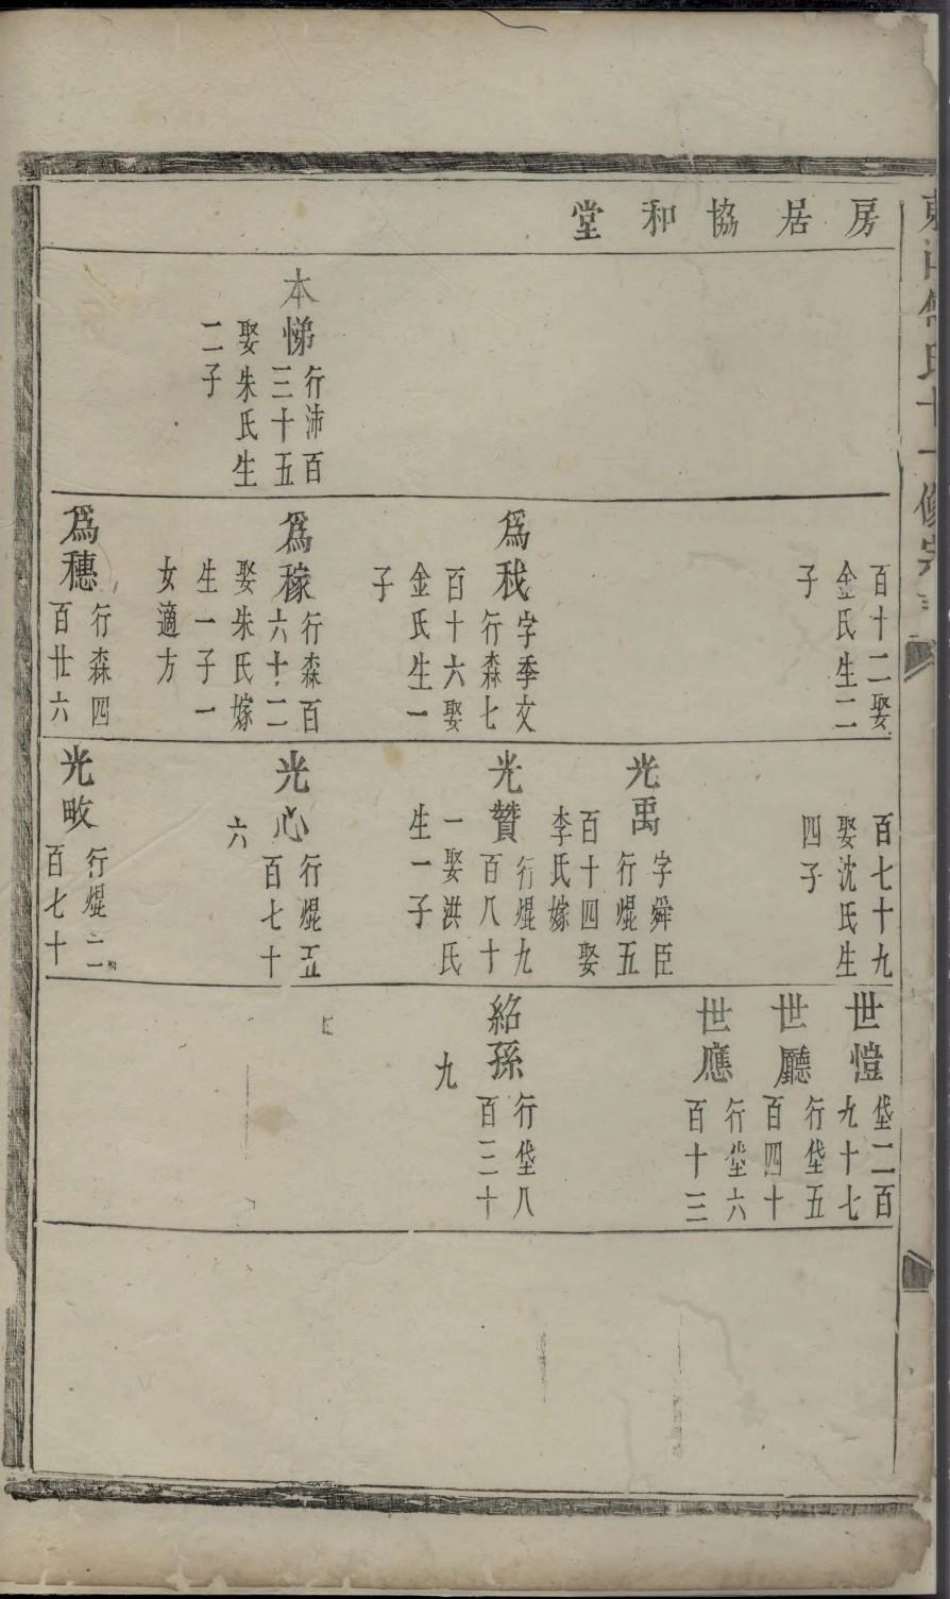 房居協和堂
本悌
行沛百
三十五
娶朱氏生
二子
百十二娶
金氏生二
子
爲我
字季文
行森七
百十六娶
金氏生一
子
爲稼
行森百
六十二
娶朱氏嫁
生一子一
女適方
爲穗
行森四
百廿六
百七十九
娶沈氏生
四子
光禹
字舜臣
行焜五
百十四娶
李氏嫁
光贊
行焜九
百八十
一娶洪氏
生一子
光心
行焜五
百七十
六
光畋
行焜二
百七十
世愷
垡二百
九十七
世廳
行垡五
百四十
世應
行垡六
百十三
紹孫
行垡八
百三十
九
氏十一修宗